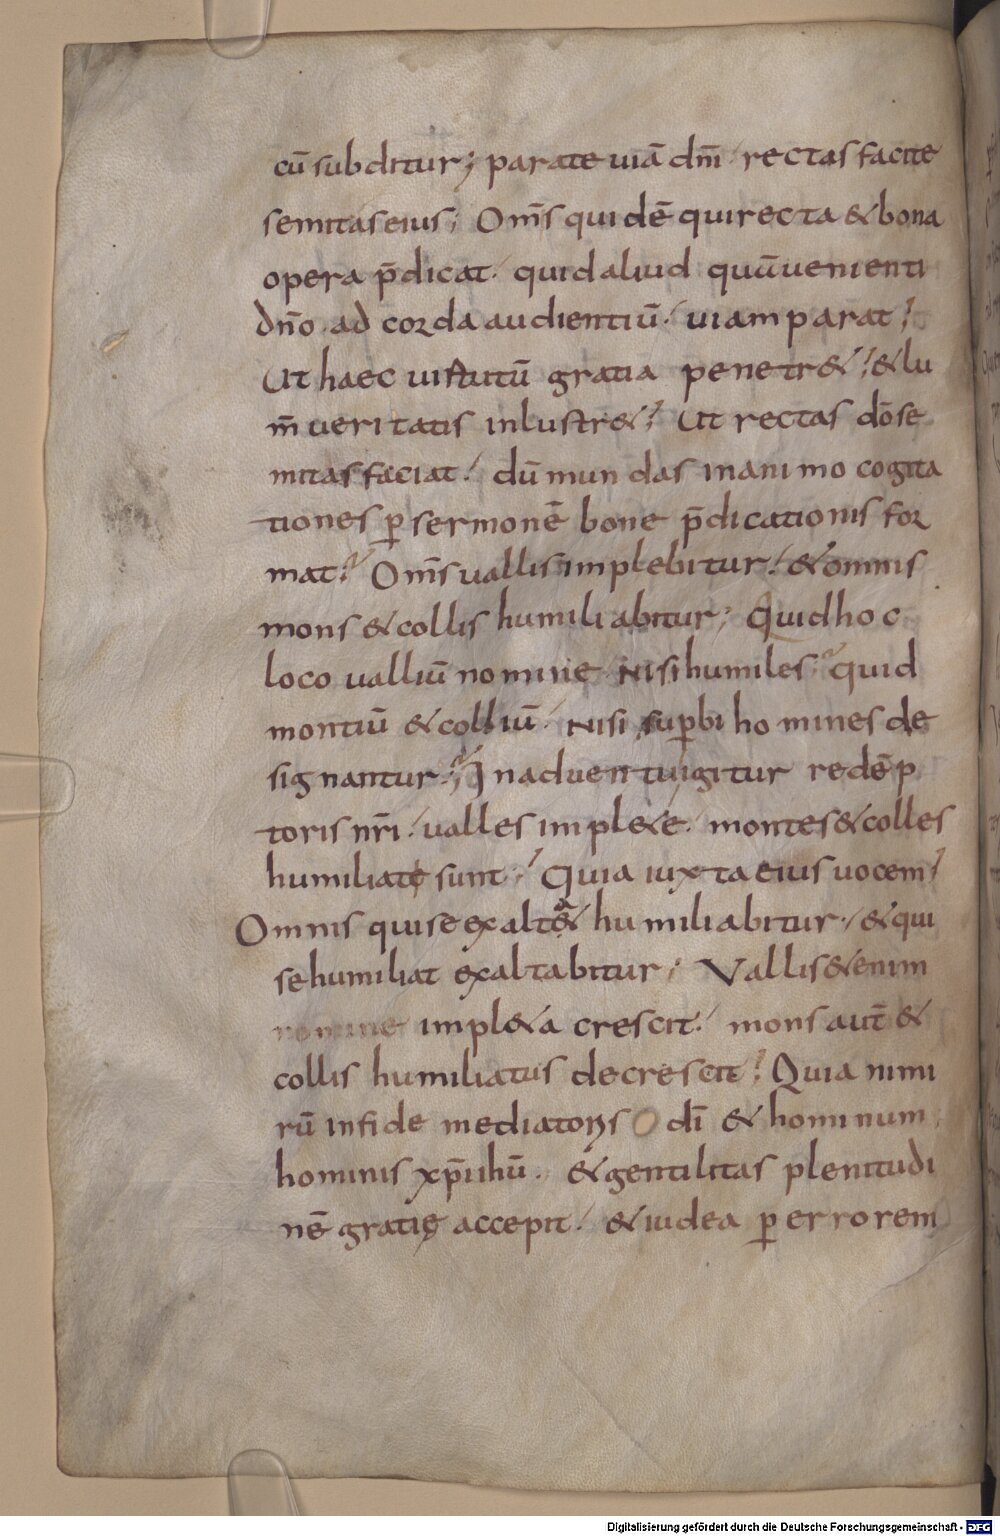 cū subditur; parate uiā dn̄i rectas facite
semitas eius; Om̄s quidē qui recta & bona
opera p̄dicat. quid aliud quā uenienti
dn̄o ad corda audientiū. uiam parat?
Ut haec uirtutū gratia penetr&. & lu
m̄ ueritatis inlustr&. Ut rectas dō se
mitas faciat. dū mundas in animo cogita
tiones ꝑ sermonē bone p̄dicationis for
mat. Om̄s uallis implebitur. & omnis
mons & collis humiliabitur; Quid hoc
loco ualliū nomine Nisi humiles. quid
montiū & colliū. Nisi suꝑbi homines de
signantur; In aduentu igitur redēp
toris nr̄i. ualles impl&e. montes & colles
humiliatę sunt. Quia iuxta eius uocem
Omnis qui se exalt& a humiliabitur. & qui
se humiliat exaltabitur; Vallis &enim
nomine impl&a crescit. mons aut̄ &
collis humiliatus decrescit. Quia nimi
rū in fide mediatoris dī & hominum
hominis xp̄i ihū. & gentilitas plenitudi
nē gratię accepit. & iudea ꝑ errorem
Digitalisierung gefördert durch die Deutsche Forschungsgemeinschaft - DFG